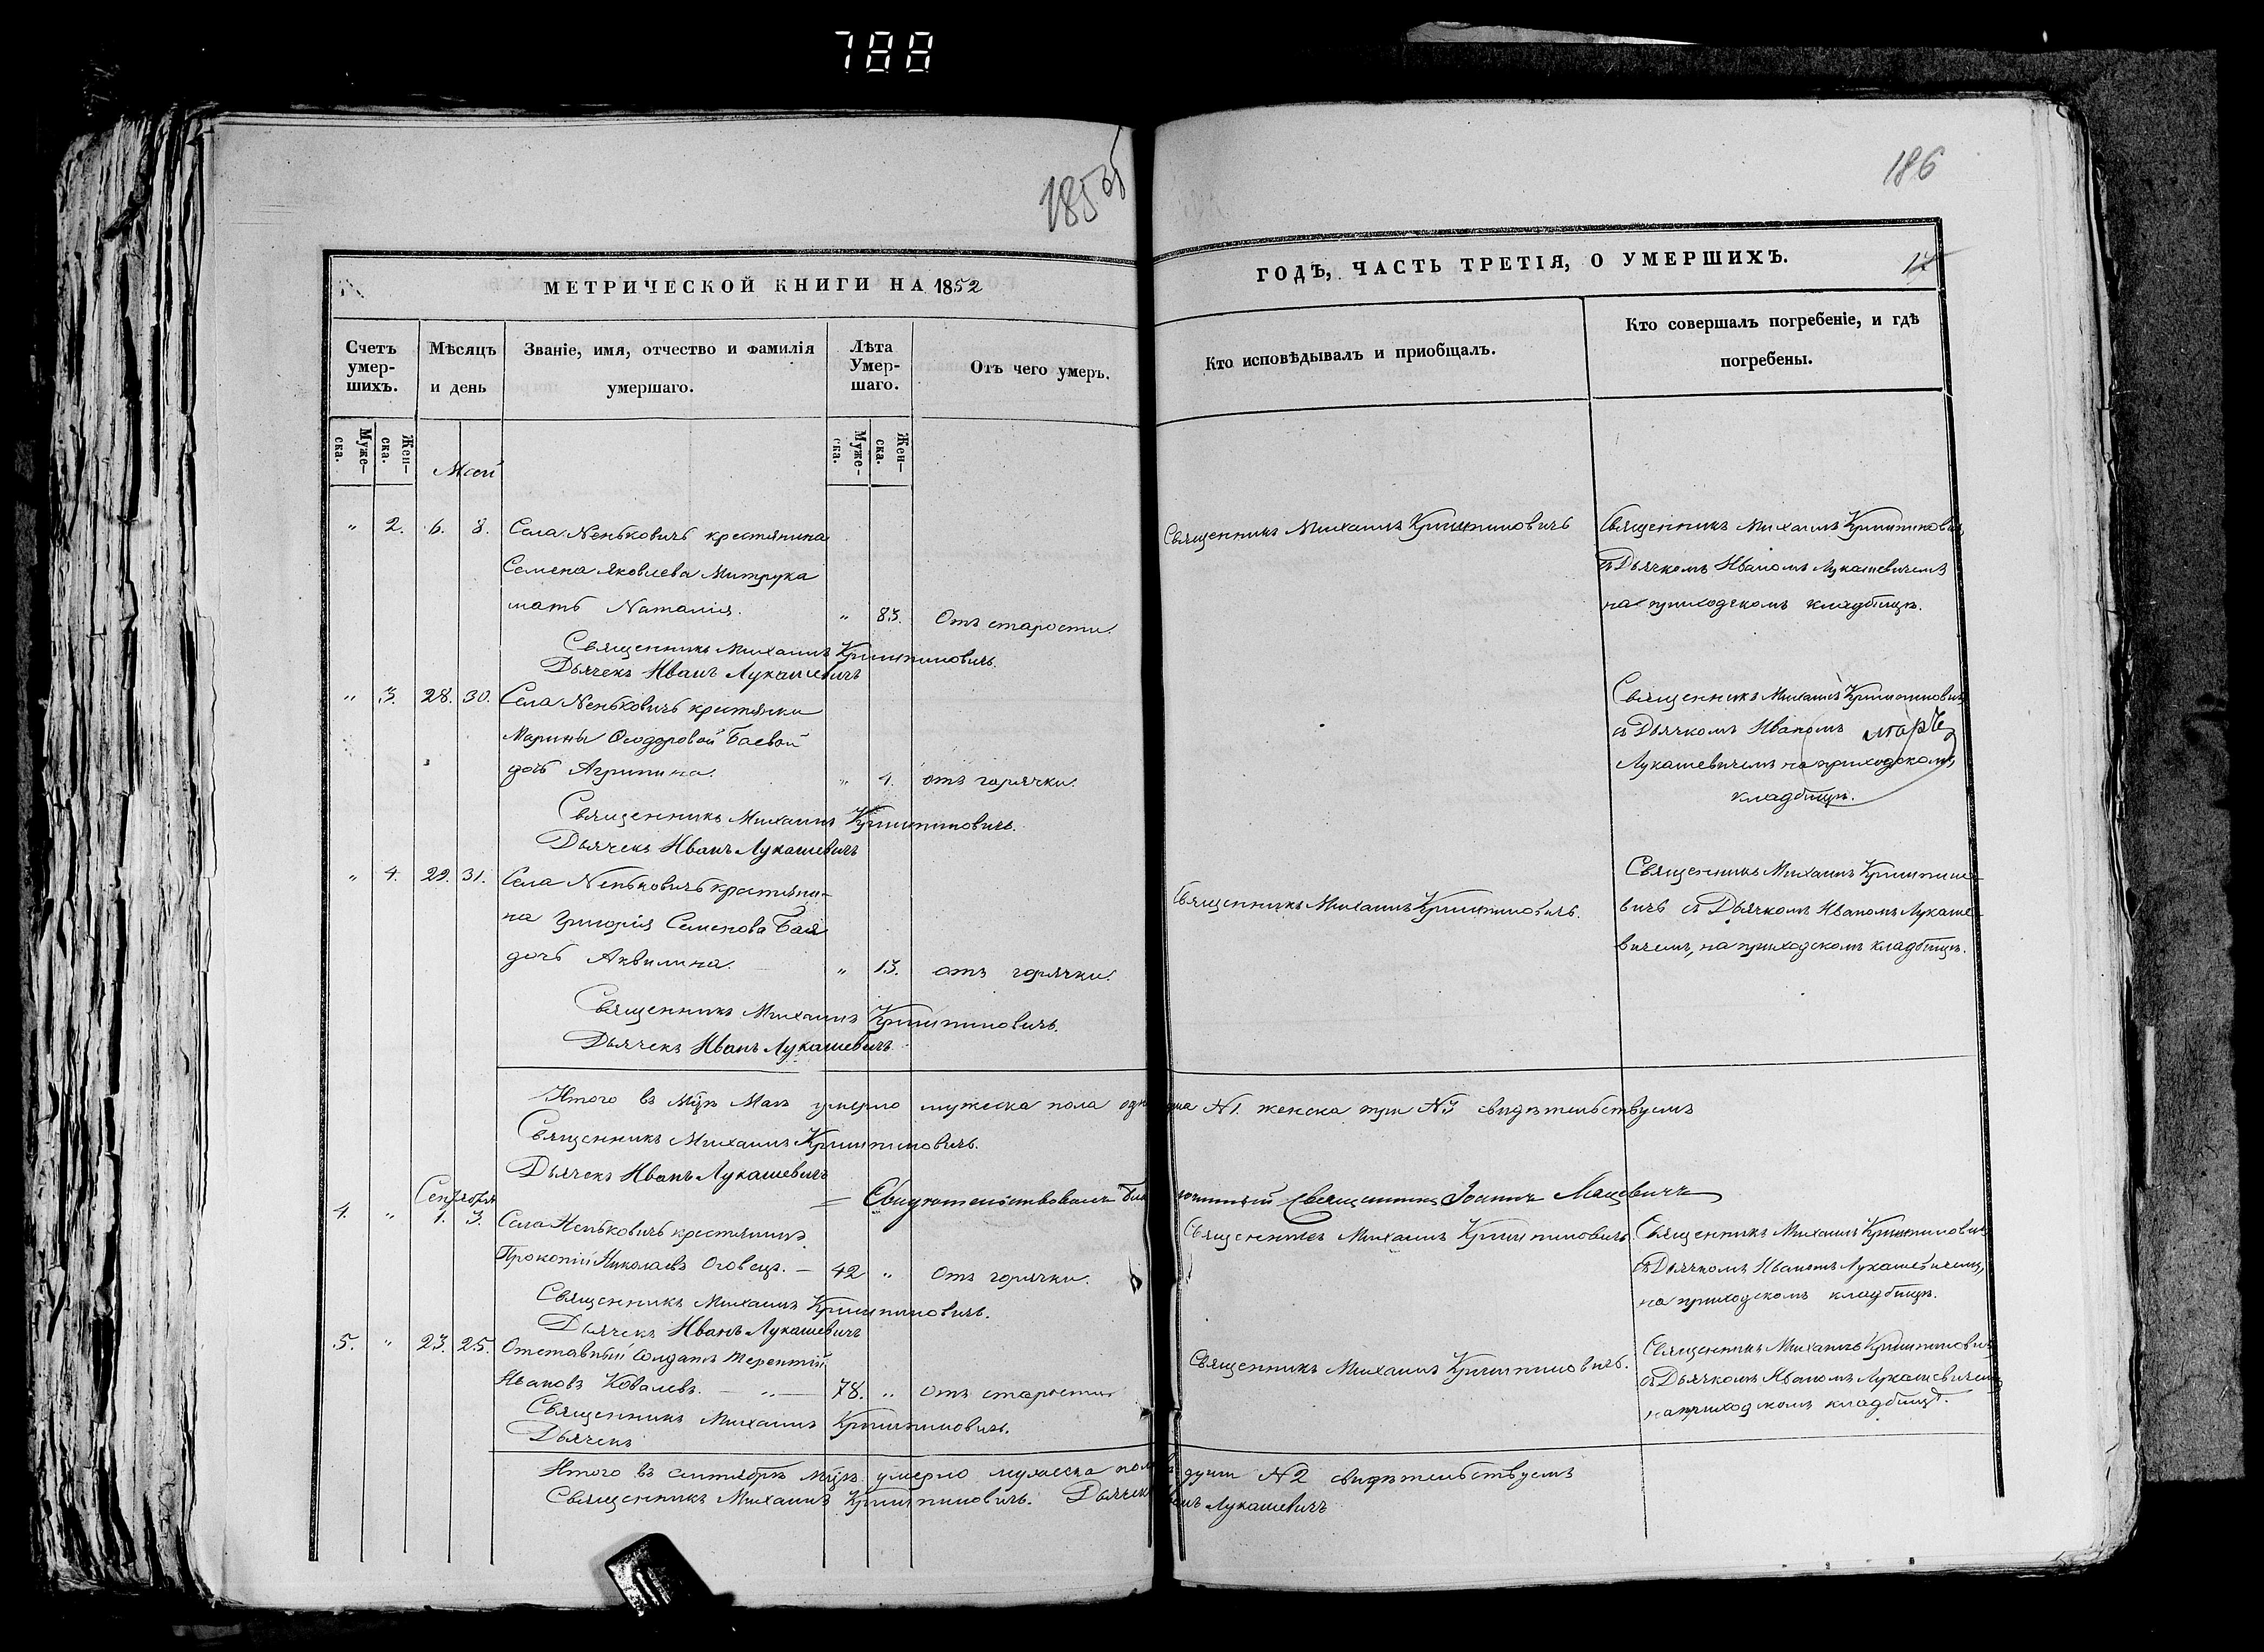 788
185об
186
МЕТРИЧЕСКОЙ КНИГИ НА 1852
ГОДЪ, ЧАСТЬ ТРЕТІЯ, О УМЕРШИХЪ.
Счетъ умер-шихъ.
Мѣсяцъ и день
Званіе, имя, отчество и фамилія умершаго.
Лѣта Умер-шаго.
Отъ чего умеръ.
Кто исповѣдывалъ и приобщалъ.
Кто совершалъ погребеніе, и гдѣ погребены.
Муже-ска.
Жен-ска.
Муже-ска.
Жен-ска.
Май
" 2. 6. 8. Села Неньковичъ крестянина
Семена Яковлева Митрука
мать Наталія. " 83. Отъ старости.
Священникъ Михаилъ Криштиновичъ.
Дьячекъ Иванъ Лукашевичъ
Священникъ Михаилъ Криштиновичъ
Священникъ Михаилъ Криштиновичъ
съ Дьячкомъ Иваномъ Лукашевичемъ
на приходскомъ кладбищѣ.
" 3. 28. 30. Села Неньковичъ крестянки
Марины Ѳеодоровой Баевой
дочь Агрипина. " 1. отъ горячки.
Священникъ Михаилъ Криштиновичъ.
Дьячекъ Иванъ Лукашевичъ
Священникъ Михаилъ Криштиновичъ
съ Дьячкомъ Иваномъ
Лукашевичемъ на приходскомъ
кладбищѣ.
" 4. 29. 31. Села Неньковичъ крестяни-
на Григорія Семенова Бая
дочь Аквилина. " 13. отъ горячки.
Священникъ Михаилъ Криштиновичъ.
Дьячекъ Иванъ Лукашевичъ
Священникъ Михаилъ Криштиновичъ.
Священникъ Михаилъ Криштино-
вичъ съ Дьячкомъ Иваномъ Лукаше-
вичемъ, на приходскомъ кладбищѣ.
Итого въ Мцѣ Маѣ умерло мужеска пола одна N1. женска три N3 свидѣтельствуемъ
Священникъ Михаилъ Криштиновичъ.
Дьячекъ Иванъ Лукашевичъ
Свидѣтельствовалъ Священникъ Іоаннъ Мацевичъ
Сентября
4. " 1. 3. Села Неньковичъ крестянинъ
Прокопій Николаевъ Оговецъ. — 42 " Отъ горячки.
Священникъ Михаилъ Криштиновичъ.
Дьячекъ Иванъ Лукашевичъ
Священникъ Михаилъ Криштиновичъ
Священникъ Михаилъ Криштиновичъ
съ Дьячкомъ Иваномъ Лукашевичемъ,
на приходскомъ кладбищѣ.
5. " 23. 25. Отставный солдатъ Терентій
Ивановъ Ковалевъ. — " — 78. " Отъ старости
Священникъ Михаилъ Криштиновичъ.
Дьячекъ
Священникъ Михаилъ Криштиновичъ.
Священникъ Михаилъ Криштиновичъ
съ Дьячкомъ Иваномъ Лукашевичемъ
на приходскомъ кладбищѣ.
Итого въ сентябрѣ мцѣ умерло мужеска пола души N2 свидѣтельствуемъ
Священникъ Михаилъ Криштиновичъ. Дьячекъ Иванъ Лукашевичъ